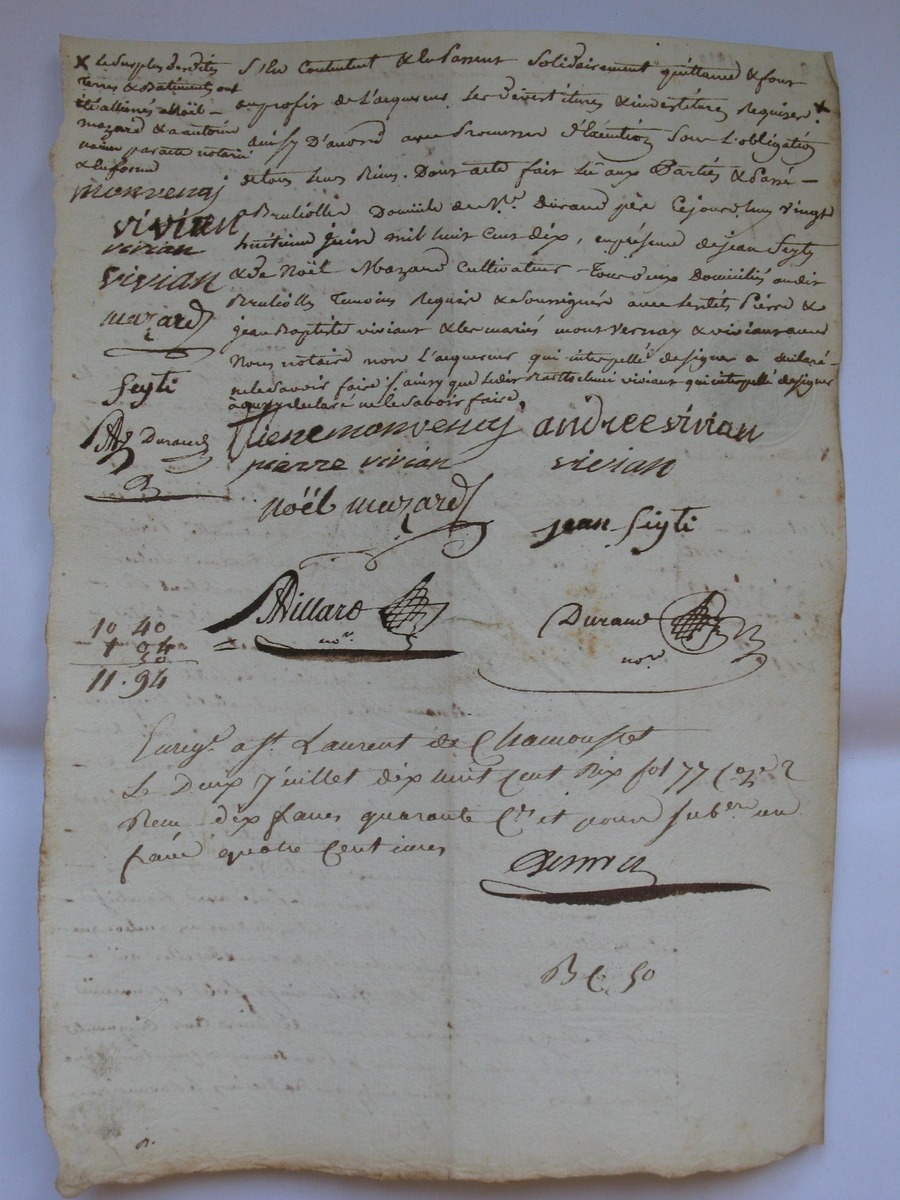 x le surplus desdites
terres & batiments ont
été alliénés à Noël
mazard & a antoine
par acte notarié
& en forme
monvenaj
vivian
vivian
vivian
mazard
Seyti
Durand
s'en contentent & en passent solidairement quittance & font
au profit de l'acquereur les devestitures & investitures requises x
ainsy D'acord avec Promesse d'Exécution sous l'obligation
de tous leurs Biens. Dont acte fait lu aux Parties & Passé
à Brulliolles Domicile de Me. Durand père Cejourd'huy vingt
huitieme juin mil huit cent dix, en présence de jean Seyti
& de Noël Mazard Cultivateurs Tous deux Domiciliés audit
Brulliolles Temoins Requis & soussignés avec lesdits Pierre &
jean Baptiste viviant & les mariés mont Vernay & viviant avec
Nous notaire non l'acquereur qui interpellé de signer a déclaré
ne le savoir faire, ainsy que ledit viviant qui interpellé de signer
a aussy declaré ne le savoir faire,
monvenaj andree vivian
pierre vivian vivian
noël mazard
jean Seyti
Villard Durand
nore. nore
10 40
1 04
50
11.94
Enregé. a St. Laurent de Chamousset
Le Deux juillet dix huit cent dix fol 77 Co ve 2
Recu dix francs quarante Cmes et pour subon un
franc quatre Centimes
B C. 50